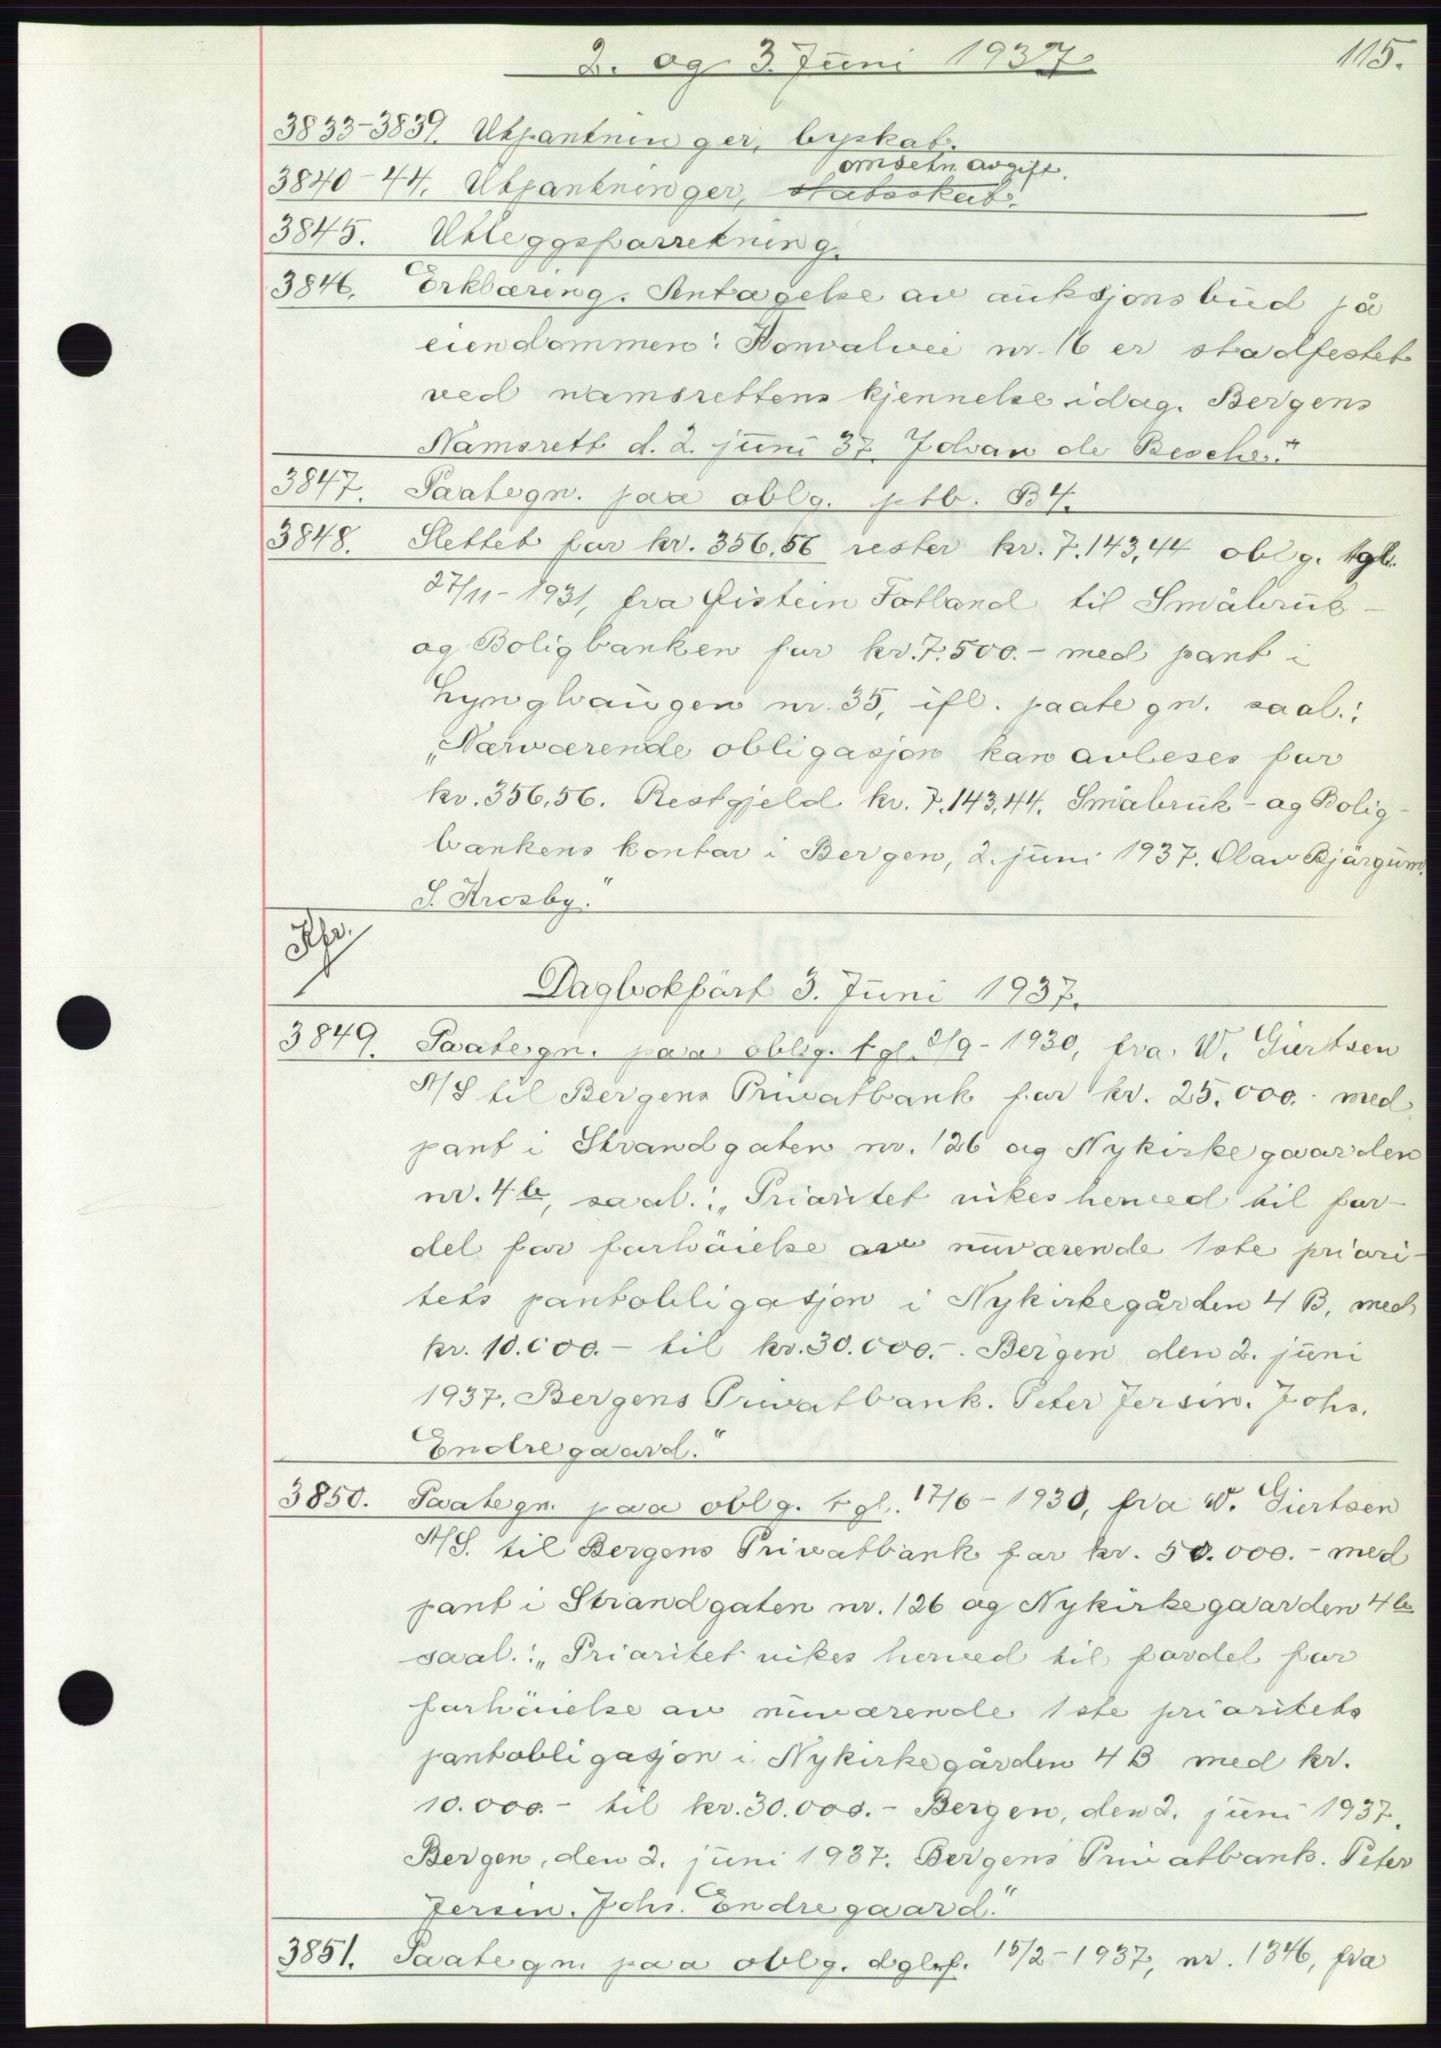 2. og 3. Juni 1937.
115.
3833-3839. Utpantninger, byskat.
omsetn. avgift.
3840-44. Utpantninger, statsskat.
3845. Utleggsforretning.
3846. Erklæring. Antagelse av auksjonsbud på
eiendommen: Konvalvei nr. 16 er stadfestet
ved namsrettens kjennelse idag. Bergens
Namsrett d. 2. juni 37. Johan de Besche."
3847. Paategn. paa oblg. ptb. B4.
3848. Slettet for kr. 356,56 rester kr. 7.143,44 oblg. tgl.
27/11-1931, fra Øistein Fotland til Småbruk-
og Boligbanken for kr. 7.500.- med pant i
Lynghaugen nr. 35, ifl. paategn. saal.:
„Nærværende obligasjon kan avleses for
kr. 356,56. Restgjeld kr. 7.143,44. Småbruk- og Bolig-
bankens kontor i Bergen, 2. juni 1937. Olav Bjørgum.
S. Krosby."
Dagbokført 3. Juni 1937.
3849. Paategn. paa oblg. tgl. 2/9-1930, fra W. Giertsen
A/S til Bergens Privatbank for kr. 25.000.- med
pant i Strandgaten nr. 126 og Nykirkegaarden
nr. 4b, saal.: „Prioritet vikes herved til for-
del for forhöielse av nuværende 1ste priori-
tets pantobligasjon i Nykirkegården 4 B, med
kr. 10.000.- til kr. 30.000.-. Bergen den 2. juni
1937. Bergens Privatbank. Peter Jersin. Johs.
Endregaard."
3850. Paategn. paa oblg. tgl. 17/6-1930, fra W. Giertsen
A/S. til Bergens Privatbank for kr. 50.000.- med
pant i Strandgaten nr. 126 og Nykirkegaarden 4b
saal.: „Prioritet vikes herved til fordel for
forhöielse av nuværende 1ste prioritets
pantobligasjon i Nykirkegården 4 B med kr.
10.000.- til kr. 30.000.- Bergen, den 2. juni 1937.
Bergen, den 2. juni 1937. Bergens Privatbank. Peter
Jersin. Johs. Endregaard."
3851. Paategn. paa oblg. dglrf. 15/2-1937, nr. 1346, fra